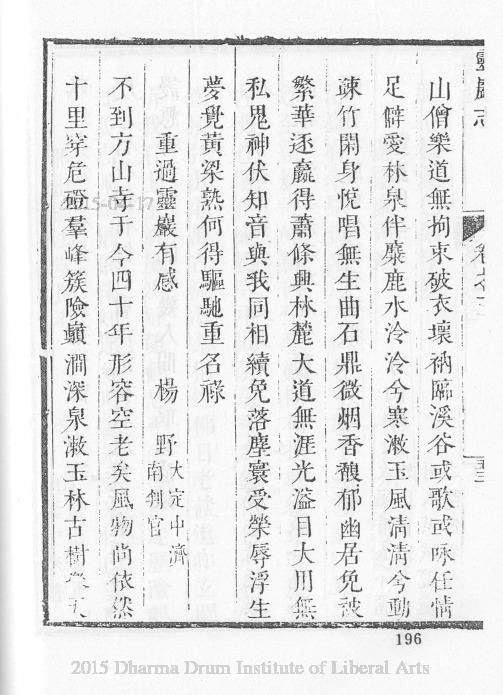 靈巖志
卷之二
五三
山僧樂道無拘束破衣壞衲臨溪谷或歌或咏任情
足僻愛林泉伴麋鹿水泠泠兮寒漱玉風清清兮動
疎竹閑身悅唱無生曲石鼎微烟香馥郁幽居免被
繁華逐贏得蕭條興林麓大道無涯光溢目大用無
私鬼神伏知音與我同相續免落塵寰受榮辱浮生
夢覺黃粱熟何得驅馳重名祿
重過靈巖有感 楊野 大定中濟南判官
不到方山寺于今四十年形容空老矣風物尚依然
十里穿危磴羣峰簇險巔澗深泉漱玉林古樹
196
2015-04-17
2015 Dharma Drum Institute of Liberal Arts